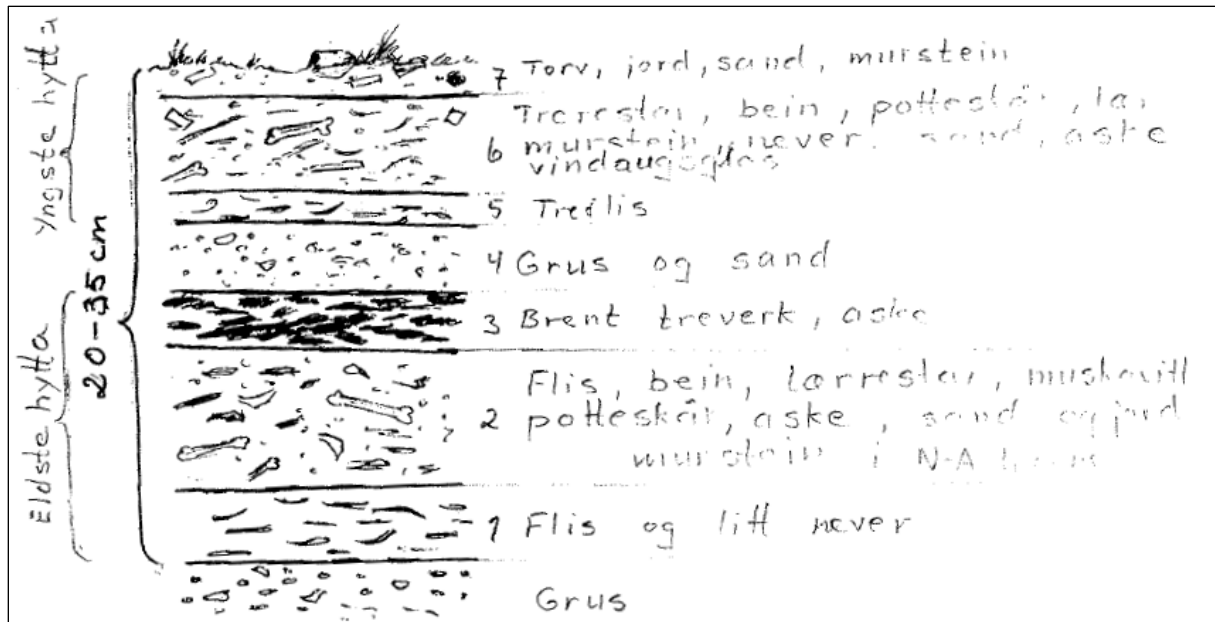 Yngste hytta
20-35 cm
Eldste hytta
7 Torv, jord, sand, murstein
Trerestar, bein, potteskår,
6 murstein, never, sand, aske
vindaugsglas
5 Treflis
4 Grus og sand
3 Brent treverk, aske
Flis, bein, lærrestar, muskovitt
2 potteskår, aske, sand og jord
murstein i N-A
1 Flis og litt never
Grus